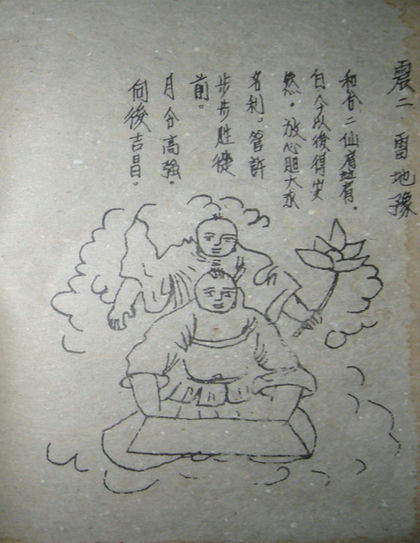 震二 雷地豫
和合二仙有有。
自今以後得安
然。放心胆大求
名利。管許
步步勝從
前。
月令高強。
向後吉昌。